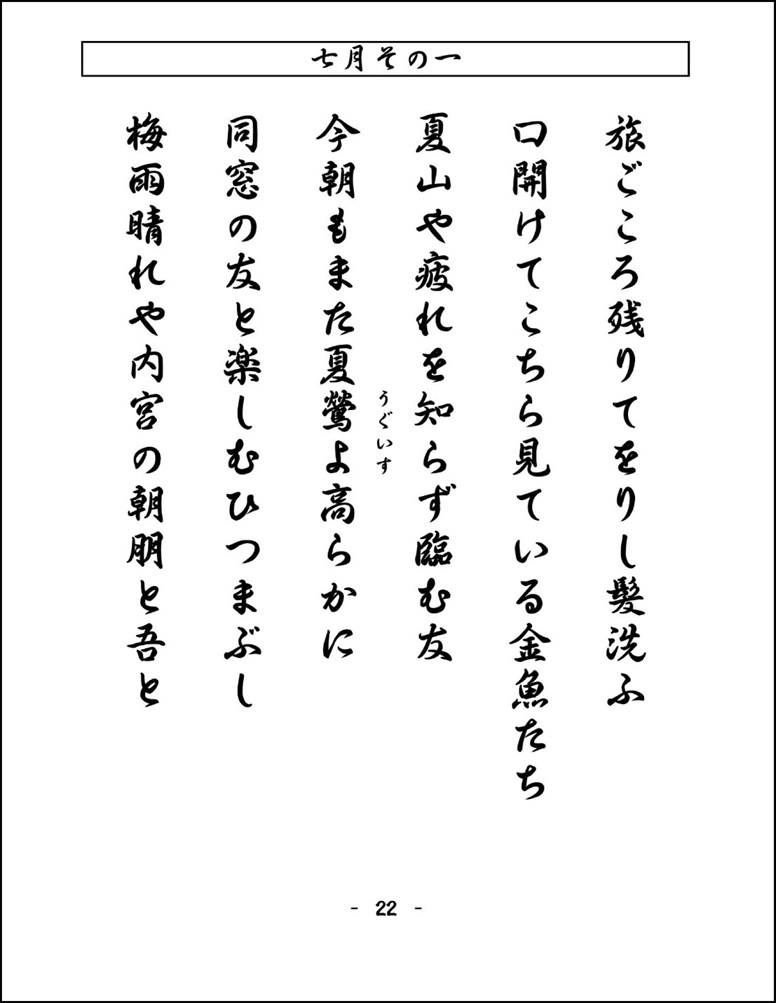 七月その一
旅ごころ残りてをりし髪洗ふ
口開けてこちら見ている金魚たち
夏山や疲れを知らず臨む友
うぐいす
今朝もまた夏鶯よ高らかに
同窓の友と楽しむひつまぶし
梅雨晴れや内宮の朝朋と吾と
- 22 -